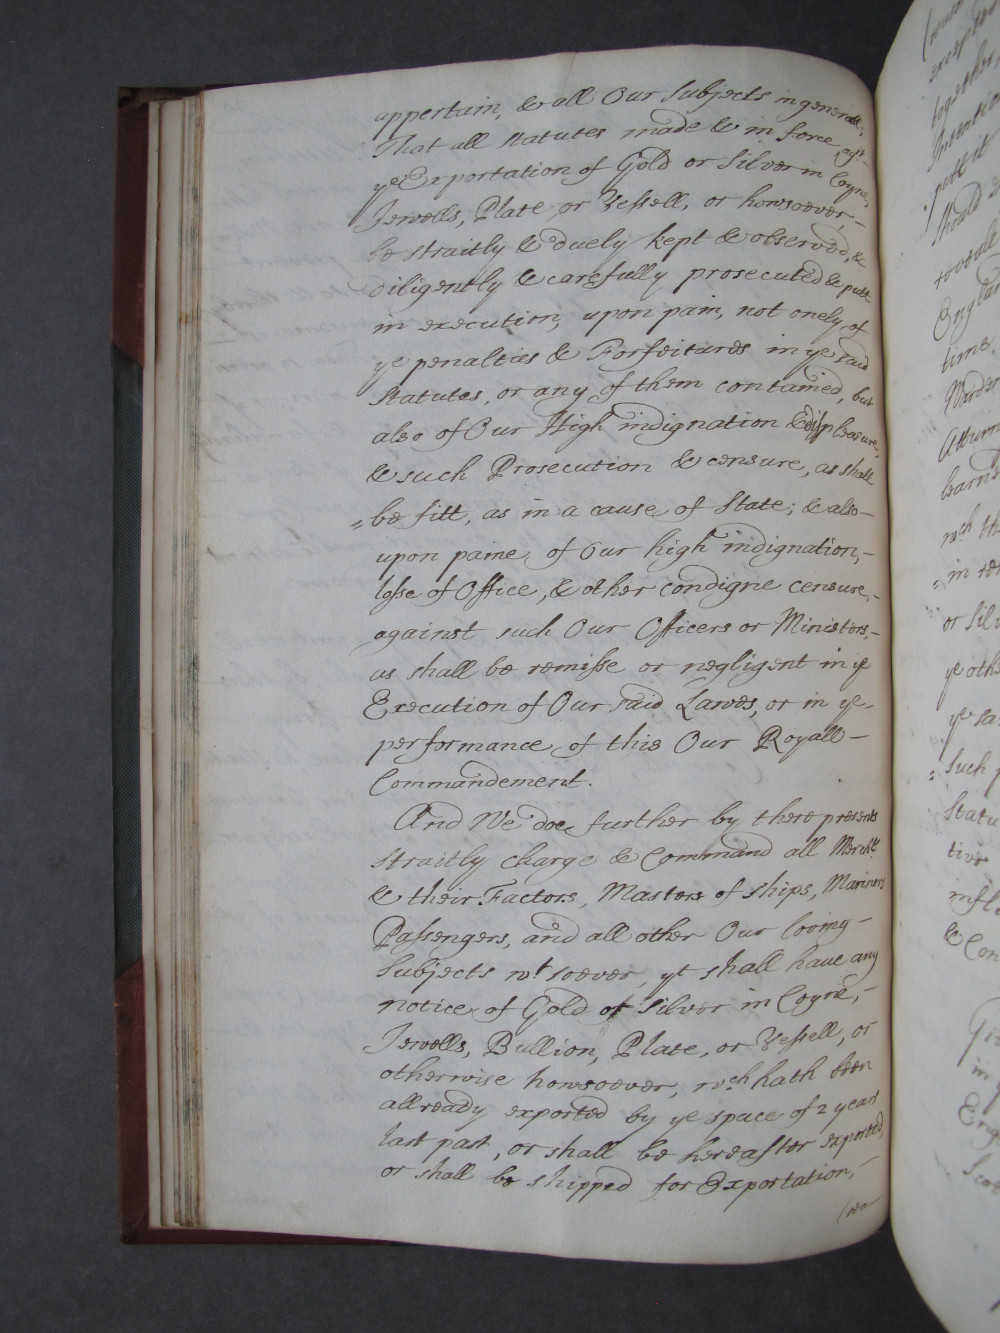 appertain, & all Our Subjects in generall;
That all Statutes made & in force agt.
ye Exportation of Gold or Silver in Coyne,
Jewells, Plate, or Vessell, or howsoever,-
be straitly & duely kept & observed, &
diligently & carefully prosecuted & putt
in execution, upon pain, not onely of
ye penalties & Forfeitures in ye said
Statutes, or any of them contained, but
also of Our High indignation & displeasure,
& such Prosecution & censure, as shall
= be fitt, as in a cause of State; & also-
upon paine of Our high indignation,-
losse of Office, & other condigne censure,-
against such Our Officers or Ministers,-
as shall be remisse or negligent in ye
Execution of Our said Lawes, or in ye-
performance of this Our Royall-
Commandement.
And We doe further by these presents
straitly charge & Command all Mercht.
& their Factors, Masters of Ships, Mariners
Passengers, and all other Our loving-
Subjects wt. soever, yt shall have any
notice of Gold or Silver in Coyne,-
Jewells, Bullion, Plate, or Vessell, or
otherwise howsoever, wch. hath been
allready exported by ye space of 2 years
last past, or shall be hereafter exported,
or shall be shipped for Exportation,-
except
together,
putt it
should
reveale
England
time
Warden
Atturn
learn'd
wch th
= in re
or Silv
ye oth
ye sa
= such p
Statu
tive
infl
& Con
in
Eng